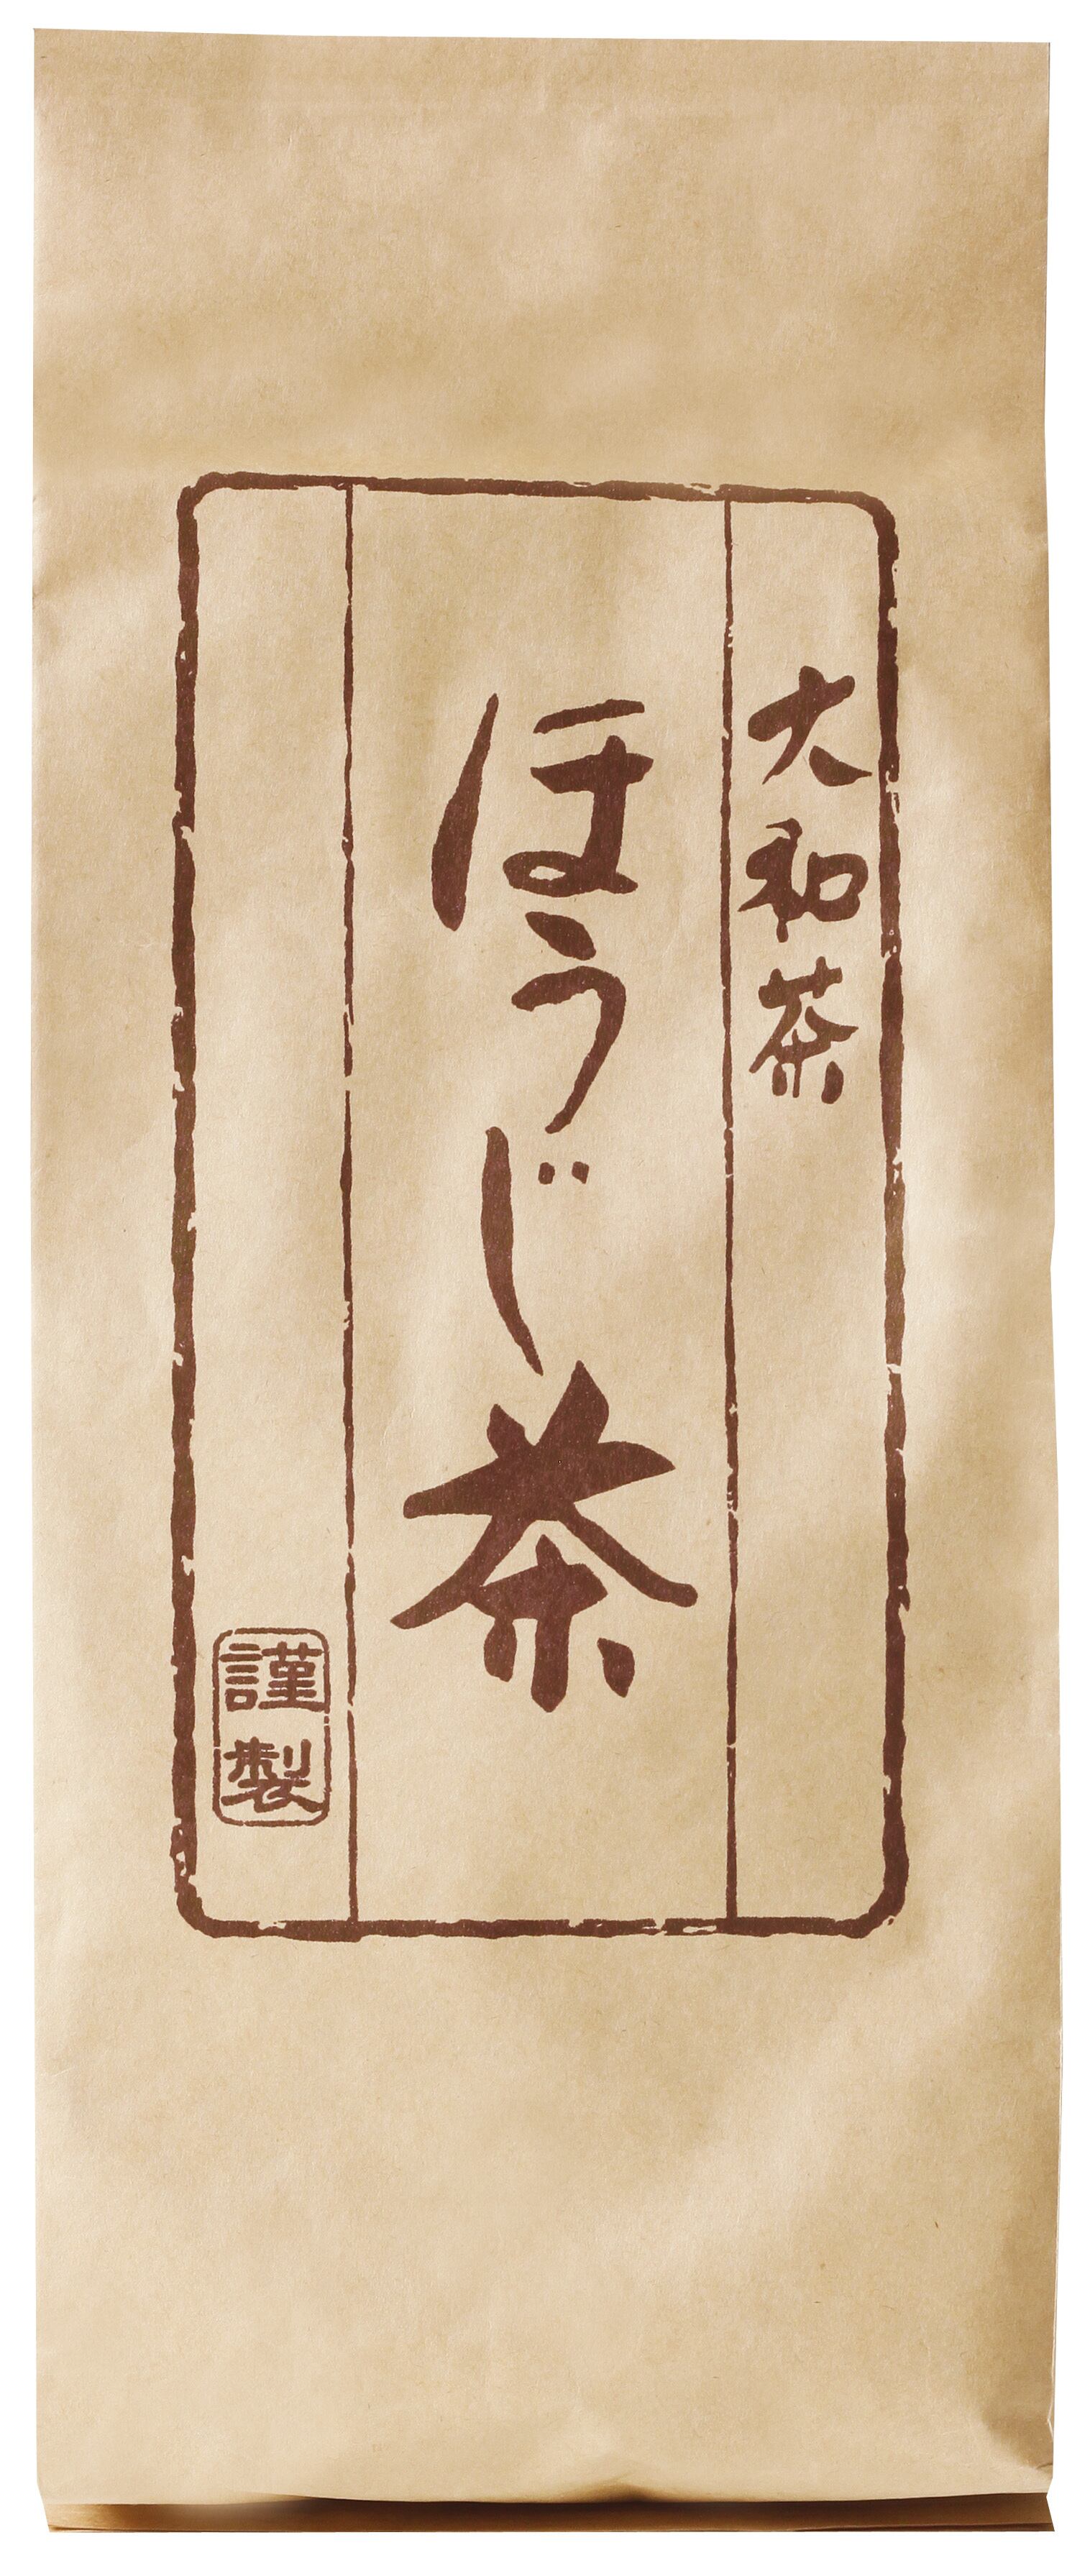 大和茶
ほうじ茶
謹製